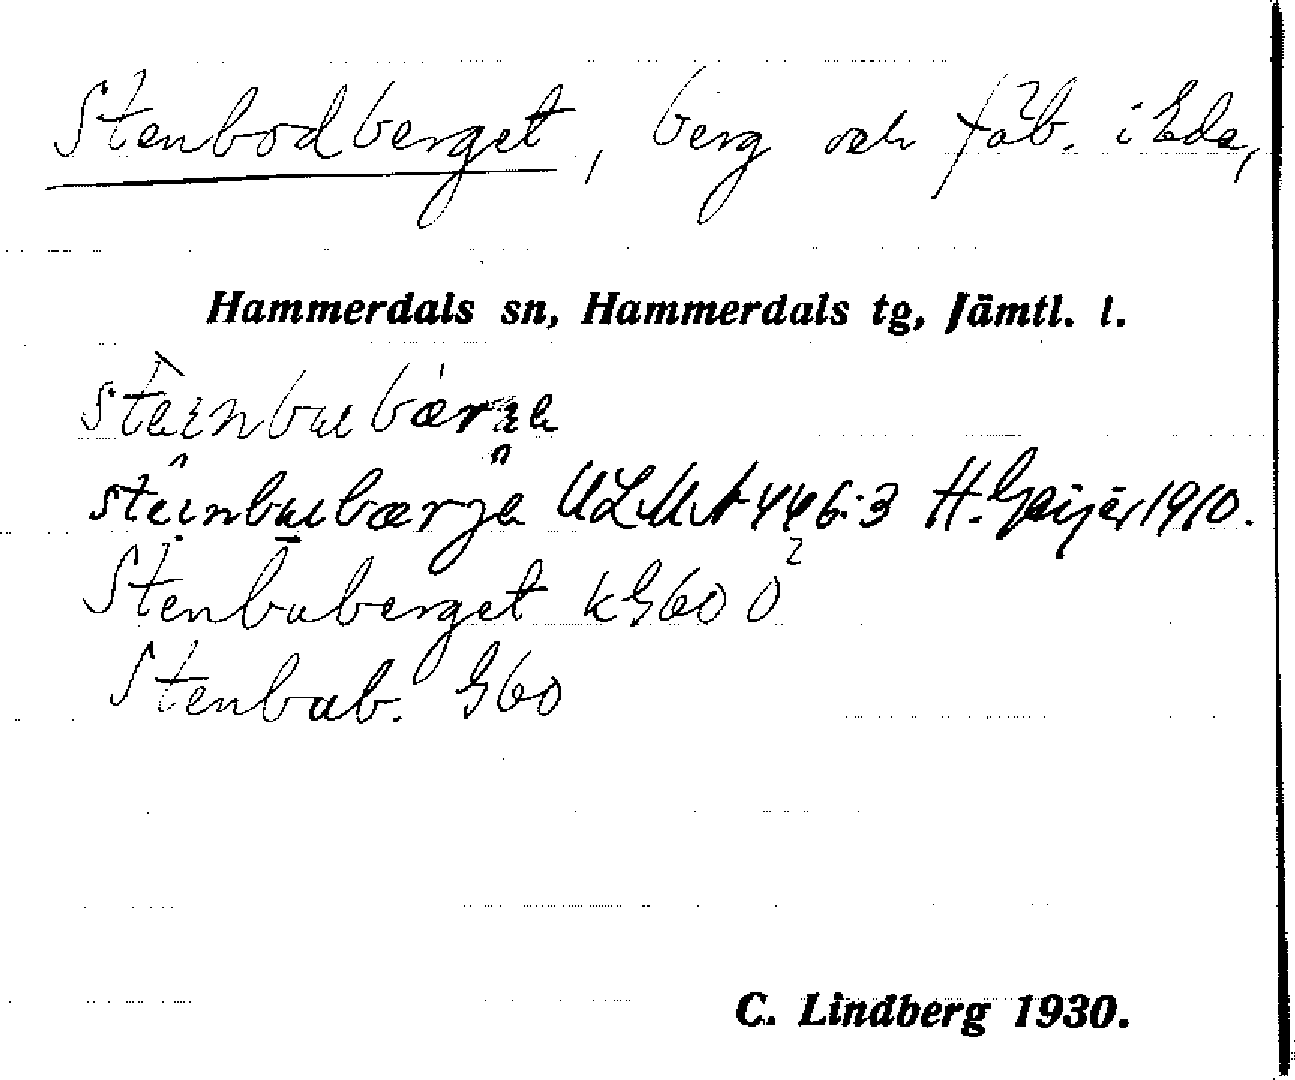 Stenbodberget, berg och fäb. i Eda,
Hammerdals sn, Hammerdals tg, Jämtl. l.
steinbuebærje
steinbuebærje ULMA 446:3 H. Geijer 1910.
Stenbuberget kG60 O²
Stenbub. G60
C. Lindberg 1930.